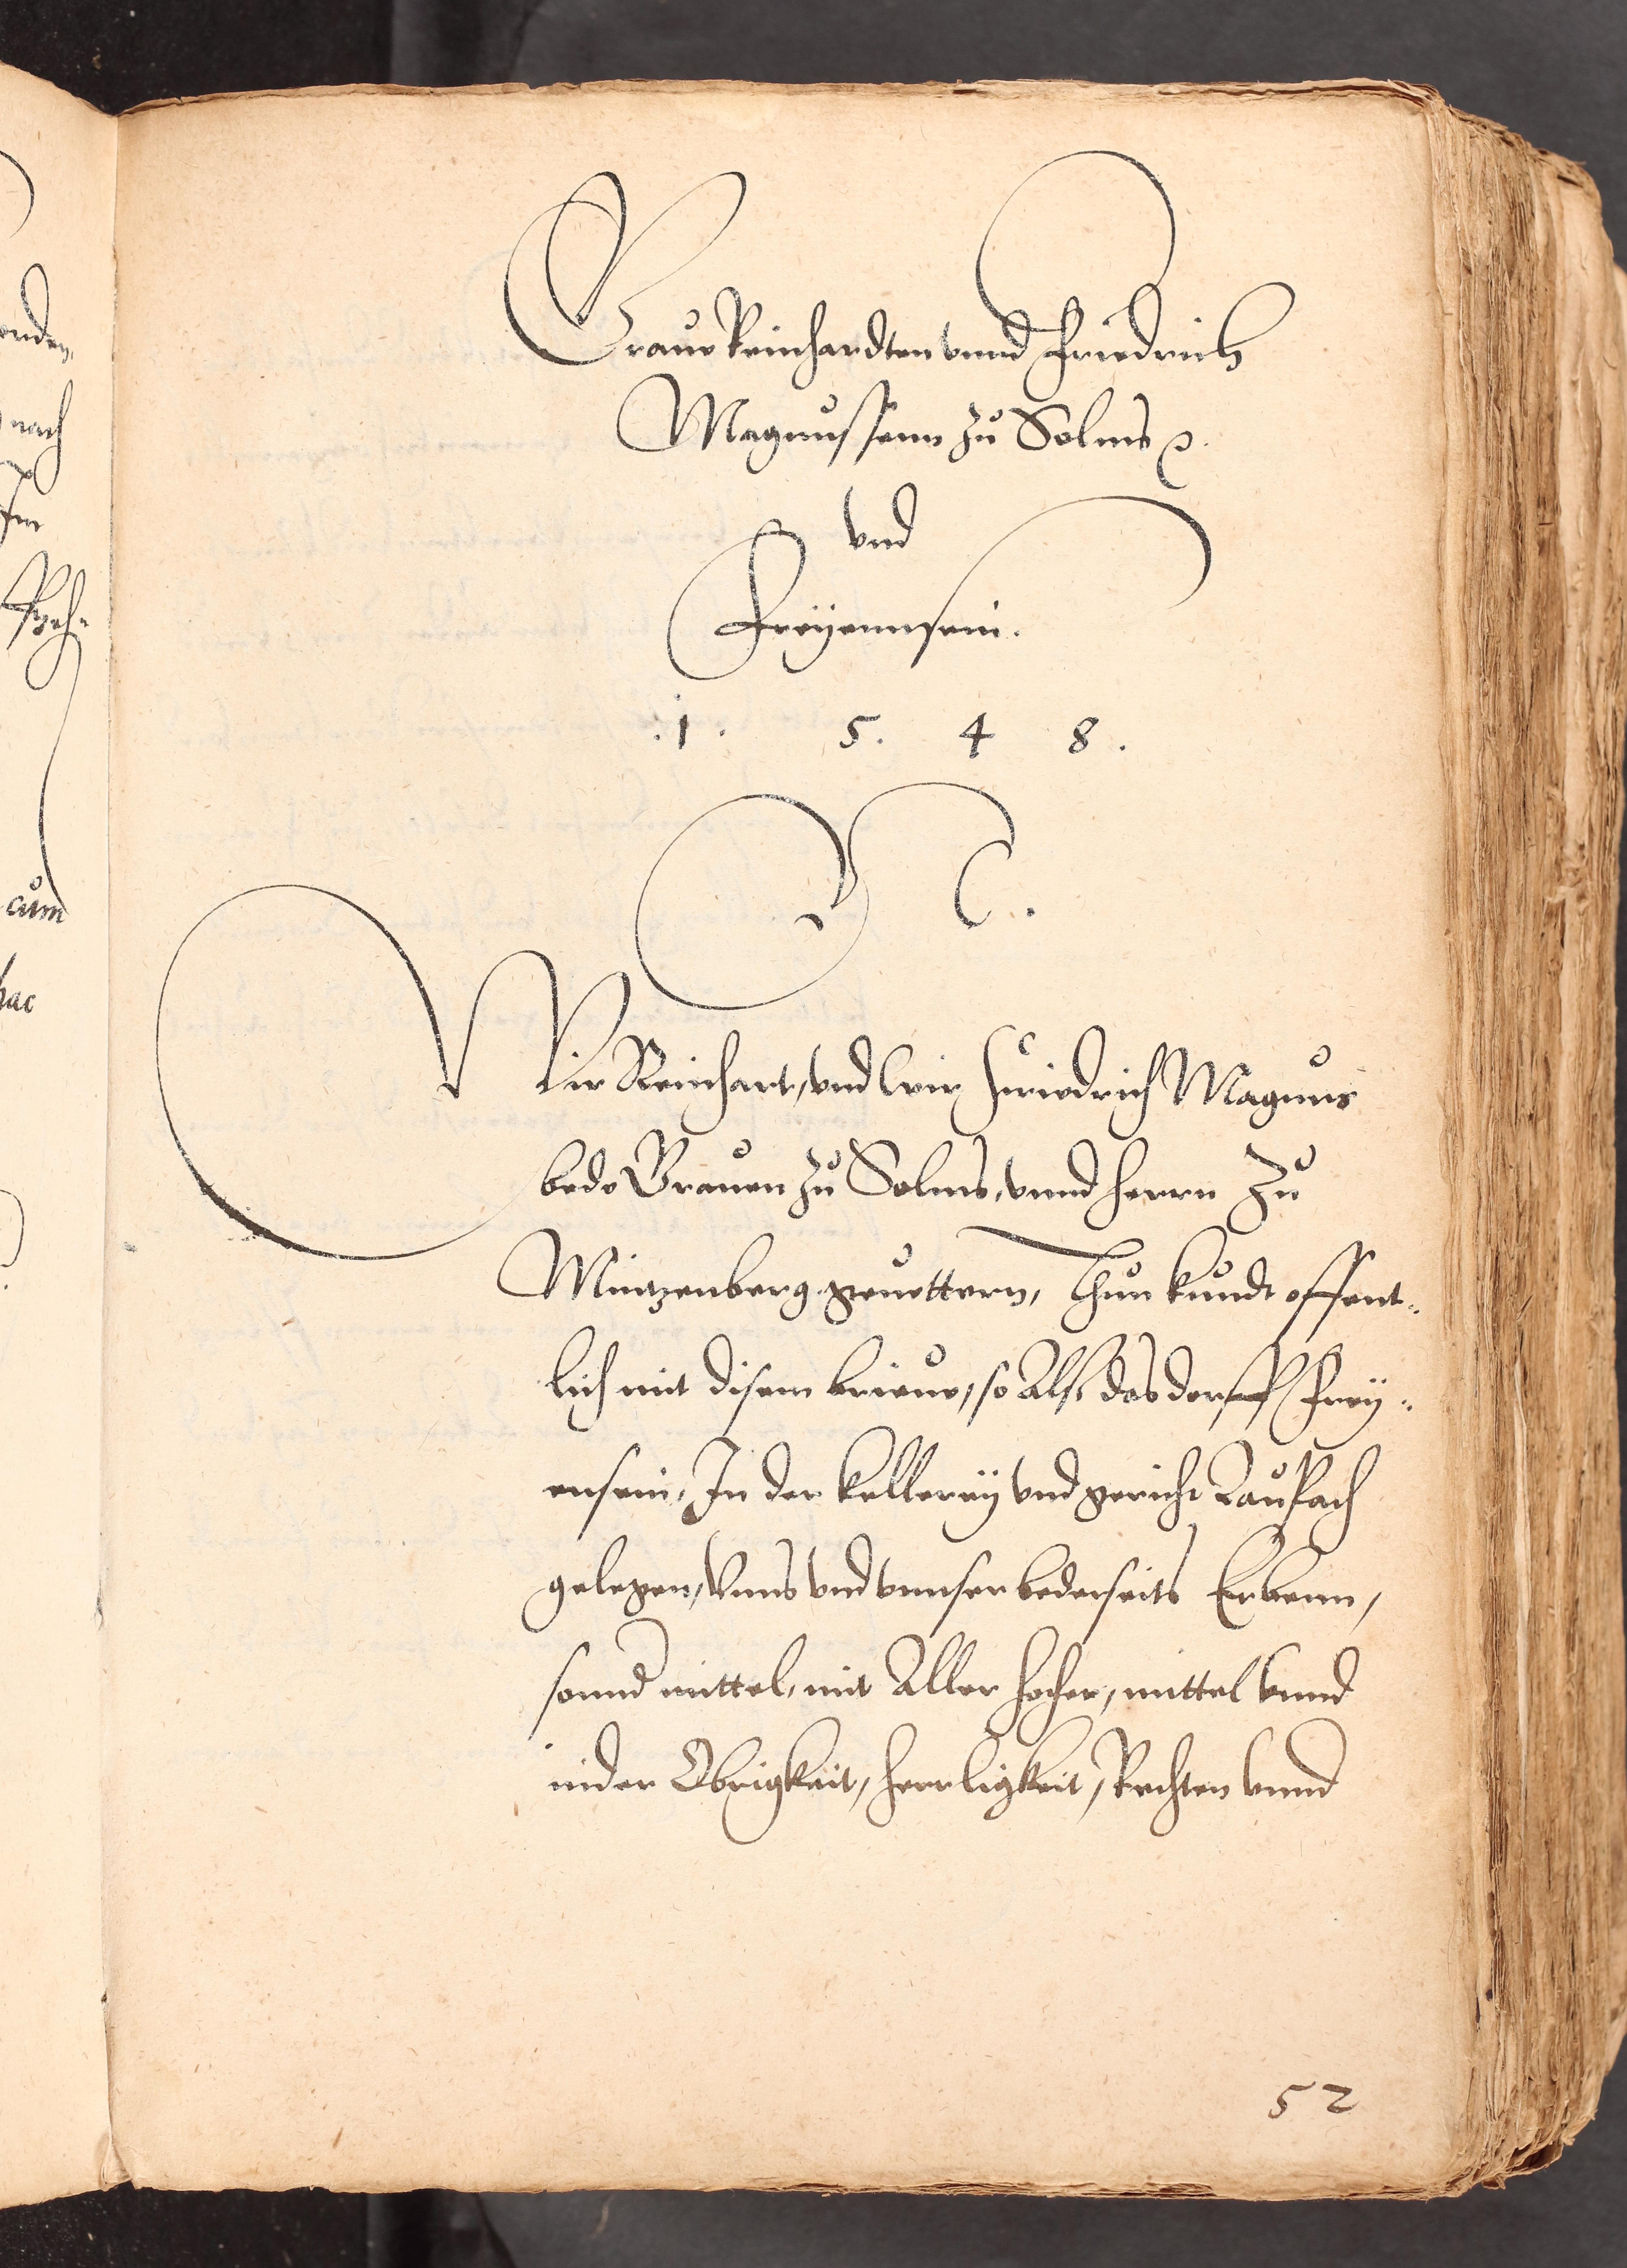 Graue Reinhardten vnnd Friedrich
Magnussenn zu Solms ꝛc.
vnd
Freyennsein.
.1. 5. 4 8.
C.
Wir Reinhart, vnd wir Friedrich Magnus
bede Grauen zu Solms, vnnd herrn zu
Mintzenberg geuettern, Thun kundt offent-
lich mit disem brieue, so Als das dorff Frey-
ensein, In der kellerey vnd gericht Laupach
gelegen, Vnns vnd vnnser bederseits Erbenn,
sonnd mittel, mit Aller hocher, mittel vnnd
nider Obrigkeit, herrligkeit, Rechten vnnd
52
onden,
nach
cum
hac